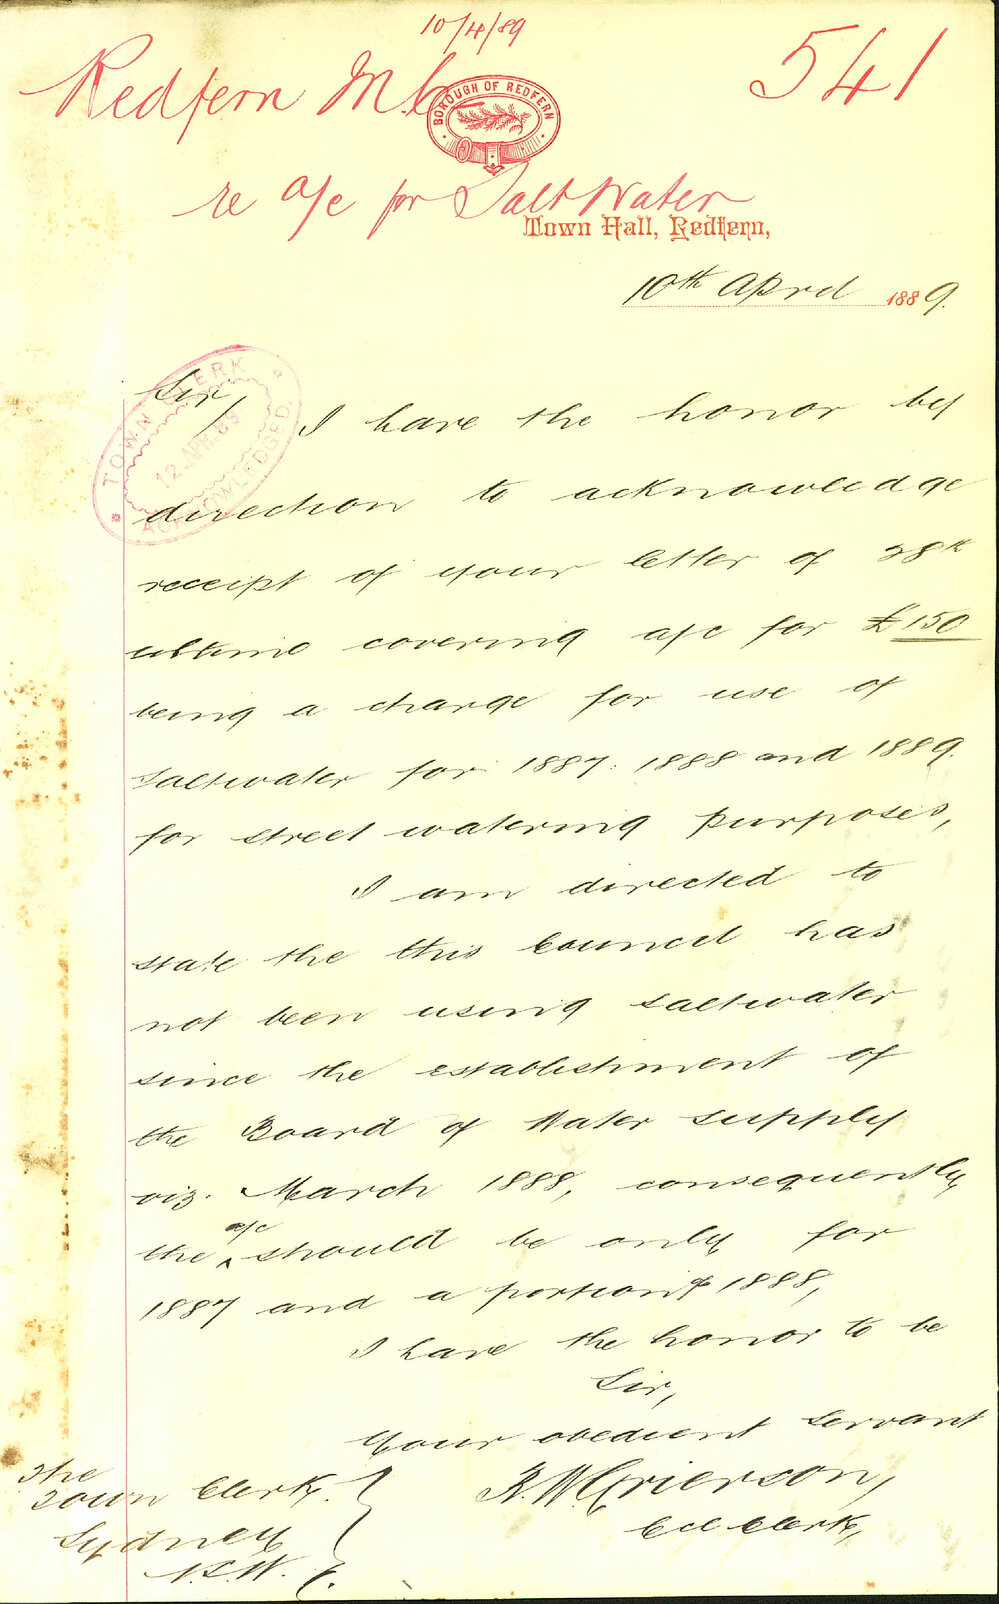 10/4/89
Redfern M.C.
541
BOROUGH OF REDFERN
re a/c for Salt Water
Town Hall, Redfern,
10th April 1889.
TOWN CLERK
12 APR. 89
ACKNOWLEDGED.
Sir,
I have the honor by
direction to acknowledge
receipt of your letter of 28th
ultimo covering a/c for £150
being a charge for use of
saltwater for 1887. 1888 and 1889.
for street watering purposes,
I am directed to
state the this Council has
not been using saltwater
since the establishment of
the Board of Water supply
viz. March 1888, consequently
the a/c should be only for
1887 and a portion of 1888,
I have the honor to be
Sir,
Your obedient Servant
Ccl Clerk,
The
Town Clerk.
Sydney
N.S.W.